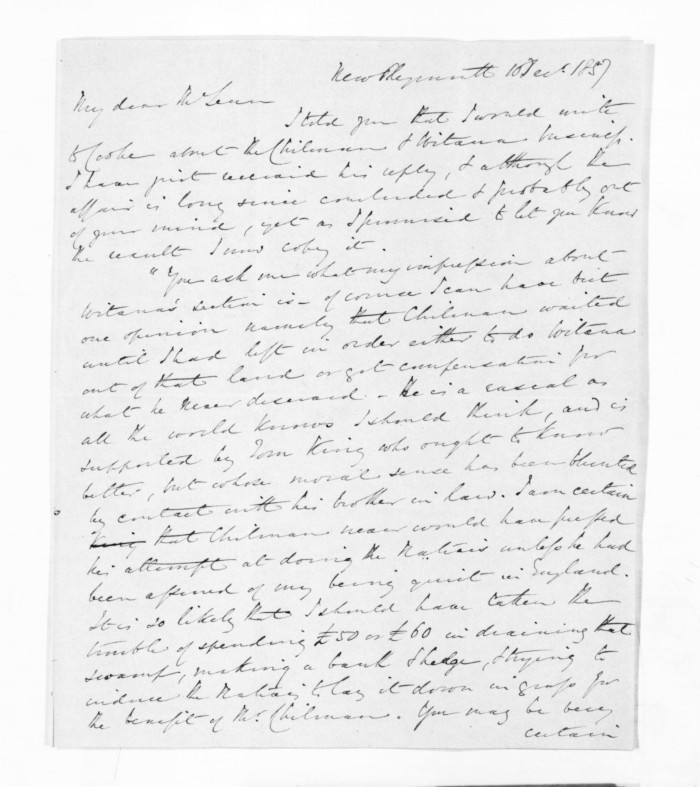 New Plymouth 10 Decr. 1857
My dear McLean
I told you that I would write
to Cooke about the Chilman & Witana business.
I have just received his reply, & although the
affair is long since concluded & probably out
of your mind, yet as I promised to let you know
the result I now copy it.
"You ask me what my impression about
Witana's section is - of course I can have but
one opinion namely that Chilman waited
until I had left in order either to do Witana
out of that land or get compensation for
what he never deserved. - He is a rascal as
all the world knows I should think, and is
supported by Tom King who ought to know
better, but whose moral sense has been blunted
by contact with his brother in law. I am certain
King that Chilman never would have pressed
his attempt at doing the Natives unless he had
been assured of my being quiet in England.
It is so likely that I should have taken the
trouble of spending £50 or £60 in draining that
swamp, making a bank & hedge, & trying to
induce the Natives to lay it down in grass for
the benefit of Mr. Chilman. You may be very
certain